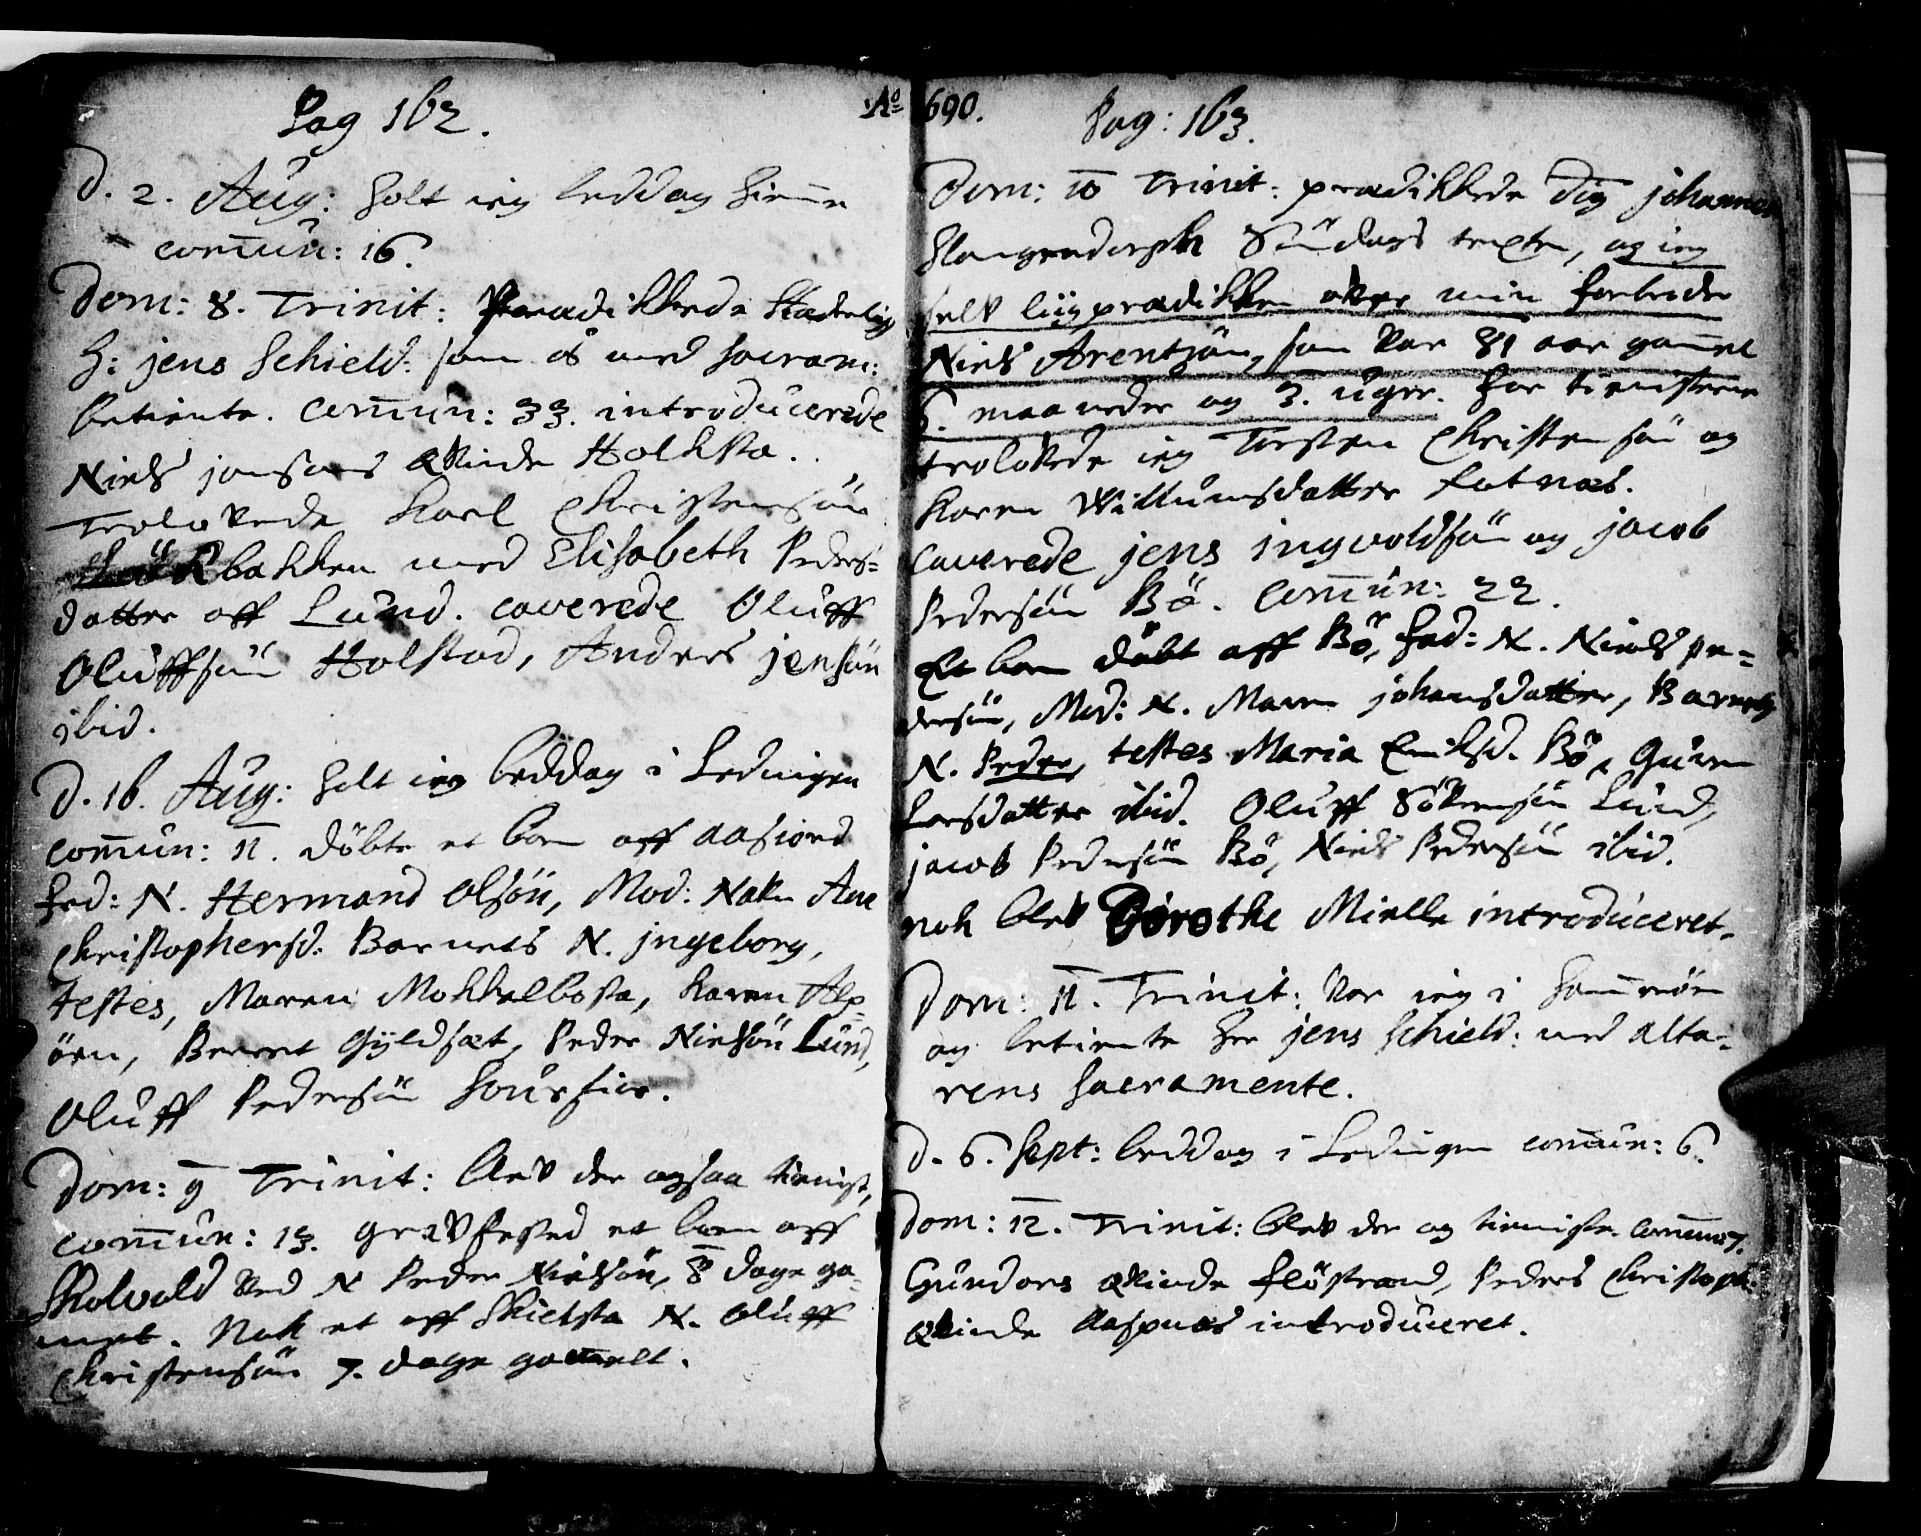 Pag 162.
d. 2. Aug: holt ieg beddag hieme
comun: 16.
Dom: 8. Trinit: Prædikkede Hæderlig
H: jens Schield: som os med sacram:
betiente. comun: 33. introducerede
Niels jonsøns qvinde Holksta.
Trolovede Karl Christensøn
bakken med Elisabeth Peders=
datter aff Lund. caverede Oluff
Oluffsøn Holstad, Anders jensøn
ibid.
d. 16. Aug: holt ieg beddag i Ledingen
comun: 11. döbte et barn aff aasiord
Fad: N. Hermand Olsön, Mod: Nakn Ane
Christophersd: Barnets N. jngeborg,
testes, Maren Mokkelbosta, Karen Alp=
öen, Berret Gyldsæt, Peder Nielsön Lund,
Oluff Pedersön
Dom: 9 Trinit: blev der ogsaa tienist,
comun: 13. gravfested et barn aff
Skolvold ved N Peder Nielsön, 8 dage ga=
melt. Nok et aff Skielsta N. Oluff
Christensön 7. dage gamelt.
Ao 1690.
Pag: 163.
Dom: 10 Trinit: prædikkede Dig johannes
Slangendorph Søndags texten, og ieg
selv liigprædikken over min formand
Niels Arentsøn, som var 81 aar gamel
6. maaneder og 3. uger. for tienisten
trolovede ieg Torsten Christensøn og
Karen Willumsdatter Fatnæs.
caverede jens ingvoldsøn og jacob
Pedersøn Bö. Comun: 22.
Et barn döbt aff Bö, fad: N. Niels pe=
dersøn, Mod: N. Maren johansdatter, Barnetz
N. Peder, testes Maria Emiksd. Bö, Guren
Larsdatter ibid. Oluff Sörensøn Lund,
jacob Pedersøn Bö, Niels Pedersøn ibid.
nok blev Dorothe Mielle introduceret.
Dom: 11. Trinit: var ieg i
og betiente Her jens Schield: med alta=
rens sacramente.
d. 6. Sept: beddag i Ledingen comun: 6.
Dom: 12. Trinit: blev der og tieniste. comun 7.
Gundors qvinde flöstrand, Peders Christoph:
qvinde Aaspnæs introduceret.